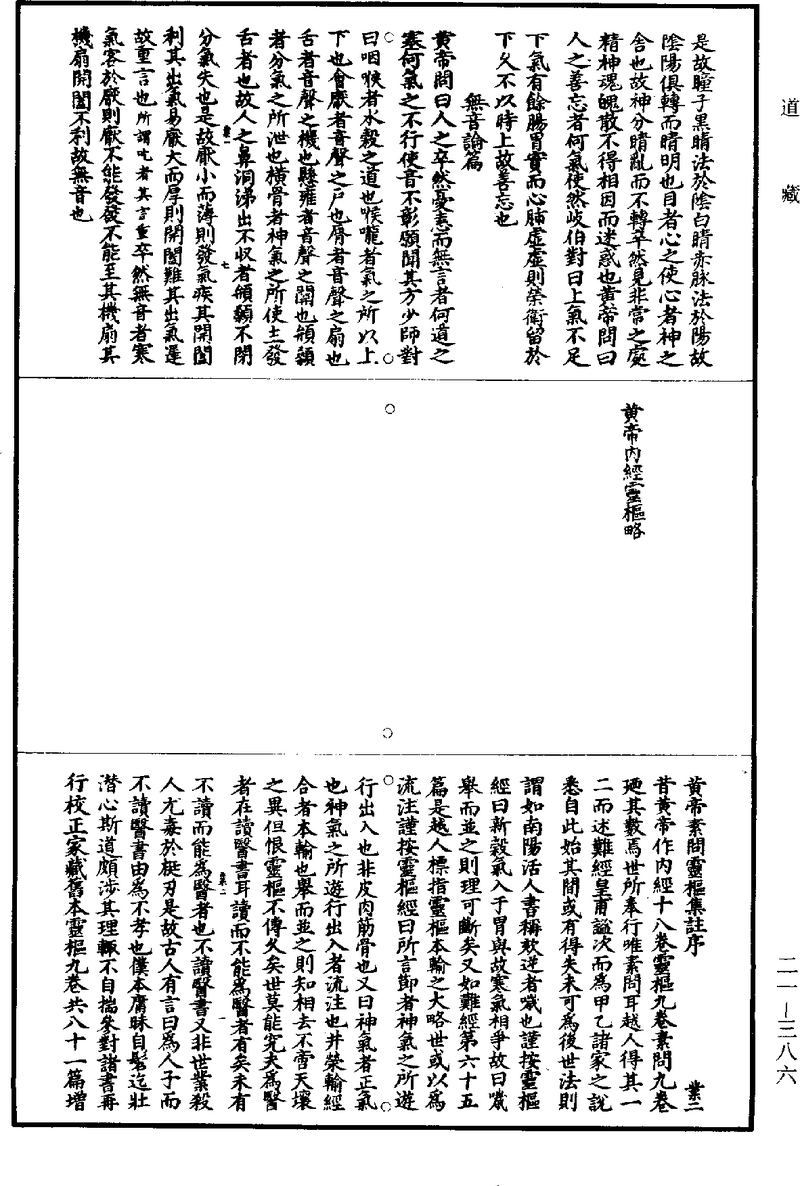 道藏
是故瞳子黑睛法於陰白睛赤脉法於陽故
陰陽俱轉而睛明也目者心之使心者神之
舍也故神分睛亂而不轉卒然見非常之處
精神魂魄散不得相因而迷惑也黄帝問曰
人之善忘者何氣使然岐伯對曰上氣不足
下氣有餘腸胃實而心肺虛虛則榮衛留於
下久不以時上故善忘也
無音論篇
黄帝問曰人之卒然憂恚而無言者何道之
塞何氣之不行使音不彰願聞其方少師對
曰咽喉者水穀之道也喉嚨者氣之所以上
下也會厭者音聲之户也脣者音聲之扇也
舌者音聲之機也懸雍者音聲之關也頏顙
者分氣之所泄也横骨者神氣之所使主發
舌者也故人之鼻洞涕出不收者頏顙不閉
分氣失也是故厭小而薄則發氣疾其開闔
利其出氣易厭大而厚則開闔難其出氣遲
故重言也所謂吃者其言重卒然無音者寒
氣客於厭則厭不能發發不能至其機扇其
機扇開闔不利故無音也
黄帝内經靈樞略
黄帝素問靈樞集註序
業二
昔黄帝作内經十八卷靈樞九卷素問九卷
廼其數焉世所奉行唯素問耳越人得其一
二而述難經皇甫謐次而為甲乙諸家之說
悉自此始其間或有得失未可為後世法則
謂如南陽活人書稱欬逆者噦也謹按靈樞
經曰新穀氣入于胃與故寒氣相爭故曰噦
舉而並之則理可斷矣又如難經第六十五
篇是越人標指靈樞本輸之大略世或以為
流注謹按靈樞經曰所言節者神氣之所遊
行出入也非皮肉筋骨也又曰神氣者正氣
也神氣之所遊行出入者流注也井榮輸經
合者本輸也舉而並之則知相去不啻天壤
之異但恨靈樞不傳久矣世莫能究夫為醫
者在讀醫書耳讀而不能為醫者有矣未有
不讀而能為醫者也不讀醫書又非世業殺
人尤毒於梃刃是故古人有言曰為人子而
不讀醫書由為不孝也僕本庸昧自髫迄壯
潜心斯道頗涉其理輙不自揣參對諸書再
行校正家藏舊本靈樞九卷共八十一篇增
二一-三八六